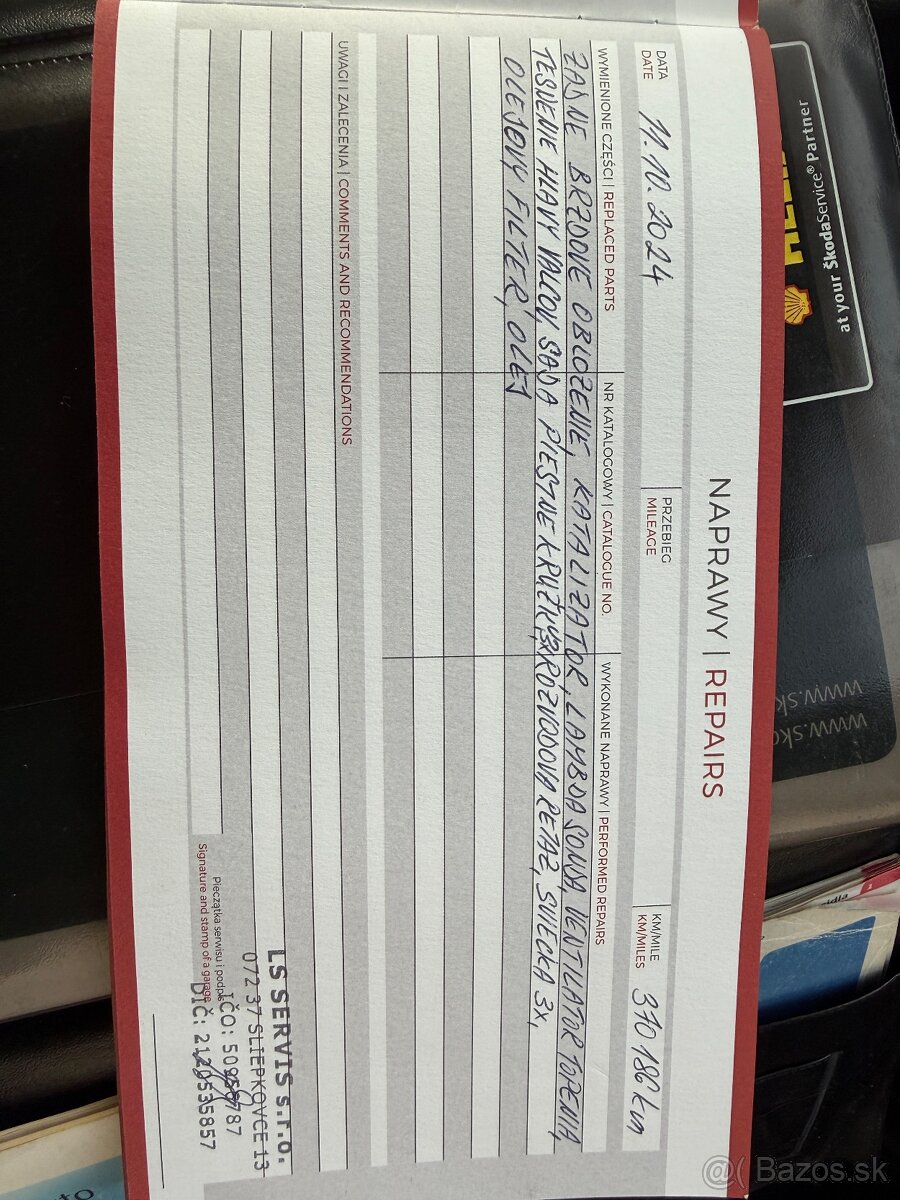 NAPRAWY | REPAIRS
DATA
DATE
11.10.2024
PRZEBIEG
MILEAGE
KM/MILE
KM/MILES
370 186 km
WYMIENIONE CZĘŚCI | REPLACED PARTS
NR KATALOGOWY | CATALOGUE NO.
WYKONANE NAPRAWY | PERFORMED REPAIRS
ZADNE BRZDOVE OBLOŽENIE, KATALIZATOR, LAMBDA SONDA, VENTILATOR TOPENIA,
TESNENIE HLAVY VALCOV, SADA PIESTNE KRUŽKY 3x, ROZVODOVA RETAZ, SVIEČKA 3x,
OLEJOVY FILTER, OLEJ
UWAGI I ZALECENIA | COMMENTS AND RECOMMENDATIONS
Pieczątka serwisu i podpis
Signature and stamp of a garage
LS SERVIS s.r.o.
072 37 SLIEPKOVCE 13
IČO: 50 787
DIČ: 2120535857
at your ŠkodaService® Partner
www.sk
www.sko
@( Bazos.sk